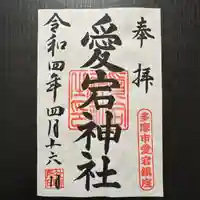 奉拝
多摩市愛宕鎮座
愛宕神社
令和四年四月十六日